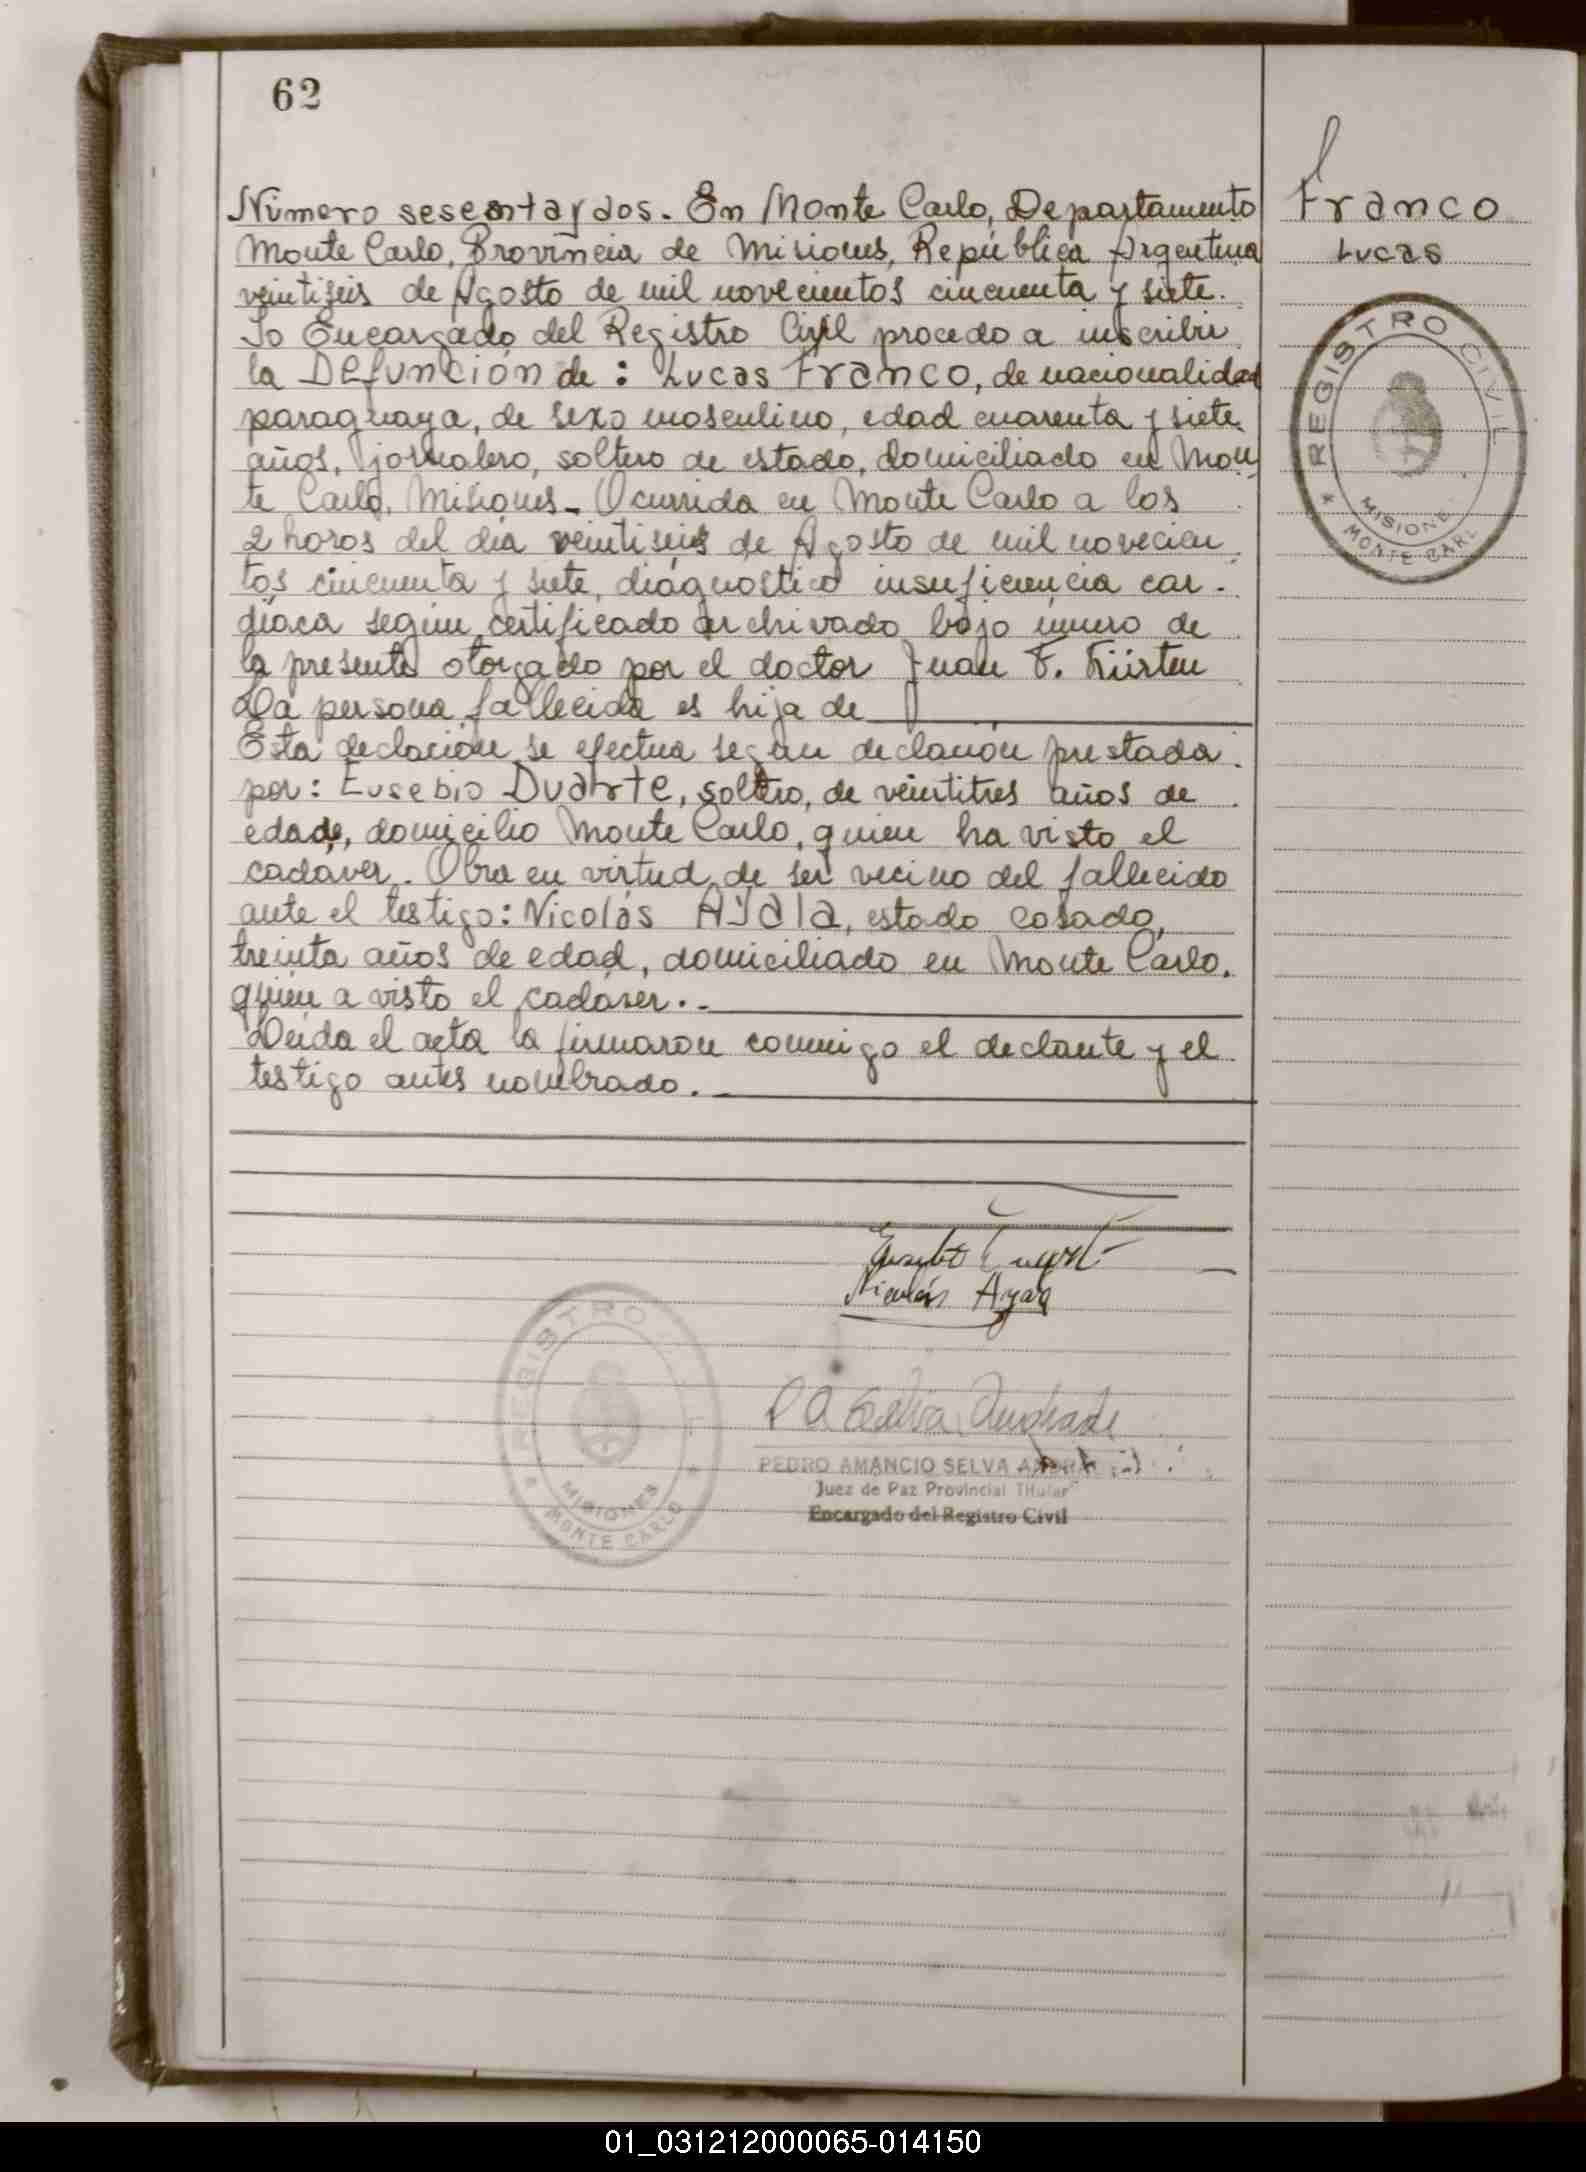 62
Número sesentaydos. En Monte Carlo, Departamento
Monte Carlo, Provincia de Misiones, República Argentina
veintiseis de Agosto de mil novecientos cincuenta y siete.
Yo Encargado del Registro Civil procedo a inscribir
la Defunción de: Lucas Franco, de nacionalidad
paraguaya, de sexo masculino, edad cuarenta y siete
años, jornalero, soltero de estado, domiciliado en Mon
te Carlo, Misiones_ Ocurrida en Monte Carlo a los
2 horas del día veintiseis de Agosto de mil novecien
tos cincuenta y siete, diágnostico insuficiencia car-
diaca según certificado archivado bajo número de
la presente otorgado por el doctor Juan F. Kürten
La persona fallecida es hija de
Esta declación se efectua segun declarión prestada
por: Eusebio Duarte, soltero, de veintitres años de
edade, domicilio Monte Carlo, quien ha visto el
cadaver. Obra en virtud de ser vecino del fallecido
ante el testigo: Nicolás Ayala, estado casado,
treinta años de edad, domiciliado en Monte Carlo.
quien a visto el cadáver._
Leida el acta la firmaron conmigo el declante y el
testigo antes nombrado._
Franco
Lucas
REGISTRO CIVIL
MISIONE
MONTE CARL
Nicolás Ayala
P A Selva Andrade
REGISTRO
MISIONES
MONTE CARLO
PEDRO AMANCIO SELVA
Juez de Paz Provincial Titular
Encargado del Registro Civil
01_031212000065-014150